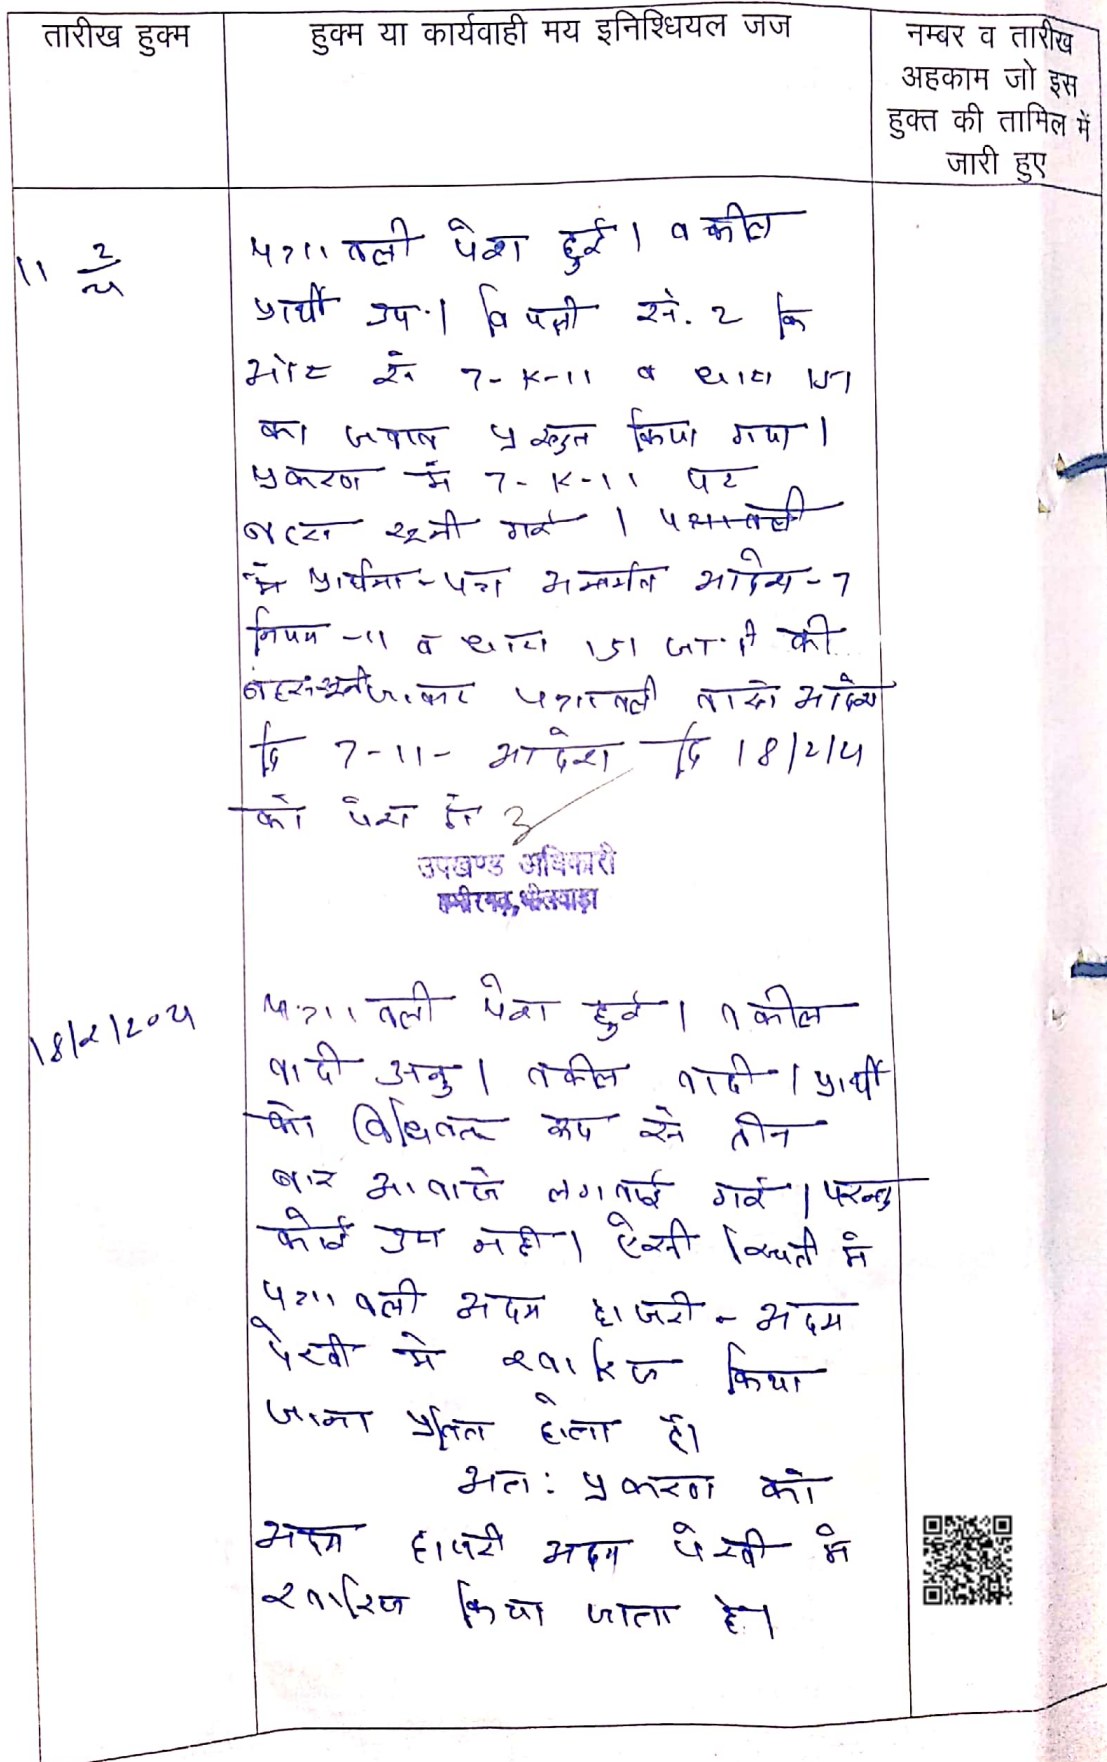 तारीख हुक्म
हुक्म या कार्यवाही मय इनिश्धियल जज
नम्बर व तारीख
अहकाम जो इस
हुक्त की तामिल में
जारी हुए
11 2/24
पत्रावली पेश हुई। वकील
प्रार्थी उप.। विपक्षी सं. 2 कि
ओर से 7-R-11 व धारा 151
का जवाब प्रस्तुत किया गया।
प्रकरण में 7-R-11 पर
बहस सुनी गई। पत्रावली
में प्रार्थना-पत्र अन्तर्गत आदेश-7
नियम-11 व धारा 151 की
पत्रावली वास्ते आदेश
दि 7-11- आदेश दि 18/2/24
को पेश हो
उपखण्ड अधिकारी
हमीरगढ़,भीलवाड़ा
18/2/2024
पत्रावली पेश हुई। वकील
वादी अनु। वकील वादी। प्रार्थी
को विधिवत रूप से तीन
बार आवाजे लगवाई गई। परन्तु
कोई उप नही। ऐसी स्थिती में
पत्रावली अदम हाजरी - अदम
पेरवी मे खारिज किया
जाना प्रतित होता है।
अत: प्रकरण को
अदम हाजरी अदम पेरवी मे
खारिज किया जाता है।